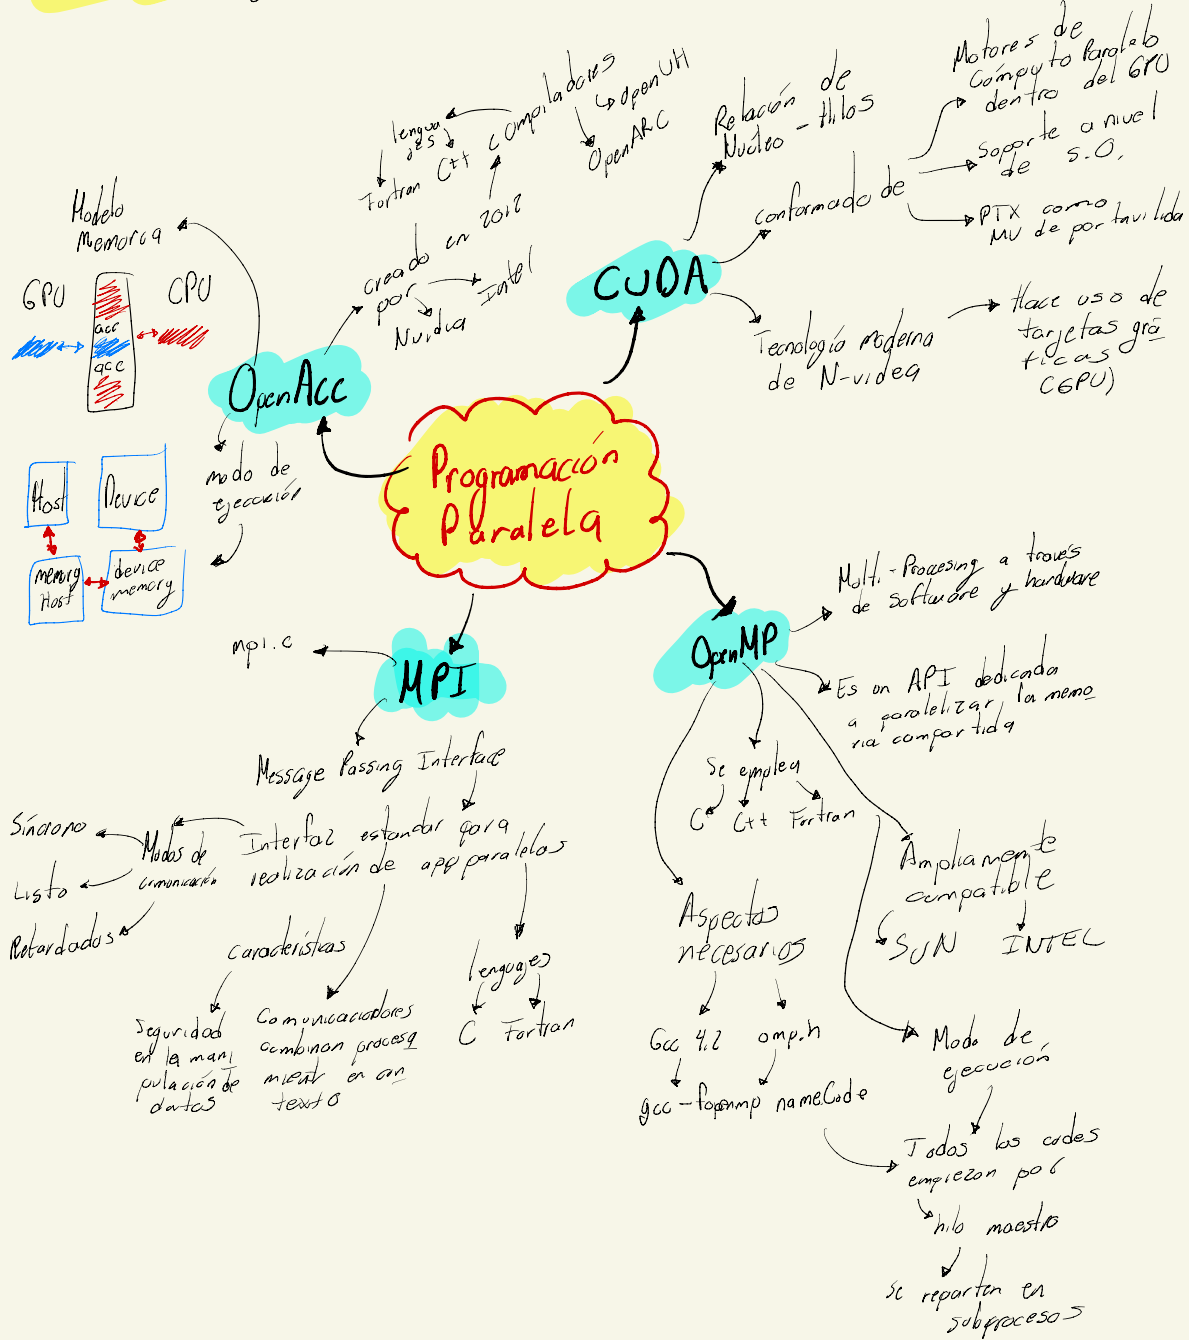 Programación
Paralela
OpenAcc
Modelo
Memorca
GPU
CPU
acc
acc
modo de
ejecución
Host
Device
memory
Host
device
memory
creado en 2012
por
Nvidia
Intel
compiladores
openUH
OpenARC
lengua
jes
Fortran
C++
CUDA
Relación de
Núcleo - Hilos
conformado de
Motores de
Cómputo Paralelo
dentro del GPU
Soporte a nivel
de S.O.
PTX como
MV de portavilida
Tecnología moderna
de N-videa
Hace uso de
tarjetas grá
ficas
(GPU)
MPI
mpi.c
Message Passing Interface
Interfaz estandar para
realización de app paralelas
Modos de
comunicación
Síncrono
Listo
Retardados
características
Seguridad
en la mani
pulación de
datos
Comunicadores
combinan procesa
mient en con
texto
lenguajes
C
Fortran
OpenMP
Multi-Procesing a través
de software y hardware
Es un API dedicada
a paralelizar la memo
ria compartida
Se emplea
C
C++
Fortran
Ampliamente
compatible
SUN
INTEL
Aspectos
necesarios
Gcc 4.2
omp.h
gcc -fopenmp nameCode
Modo de
ejecución
Todos los codes
empiezan por
hilo maestro
se reparten en
subprocesos